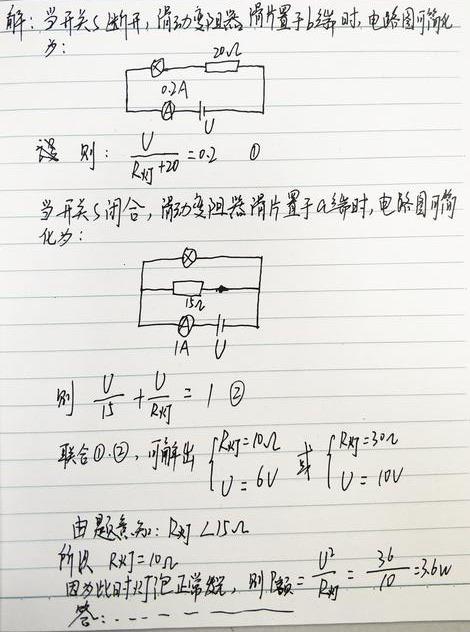 解：当开关S断开，滑动变阻器滑片置于b端时，电路图可简化
为：
20Ω
0.2A
A
U
则：U/(R灯+20)=0.2 ①
当开关S闭合，滑动变阻器滑片置于a端时，电路图可简
化为：
15Ω
A
1A U
则 U/15 + U/R灯 = 1 ②
联合①、②，可解出 { R灯=10Ω U=6V 或 { R灯=30Ω U=10V
由题意知：R灯<15Ω
所以 R灯=10Ω
因为此时灯泡正常发光，则P额=U²/R灯=36/10=3.6W
答：